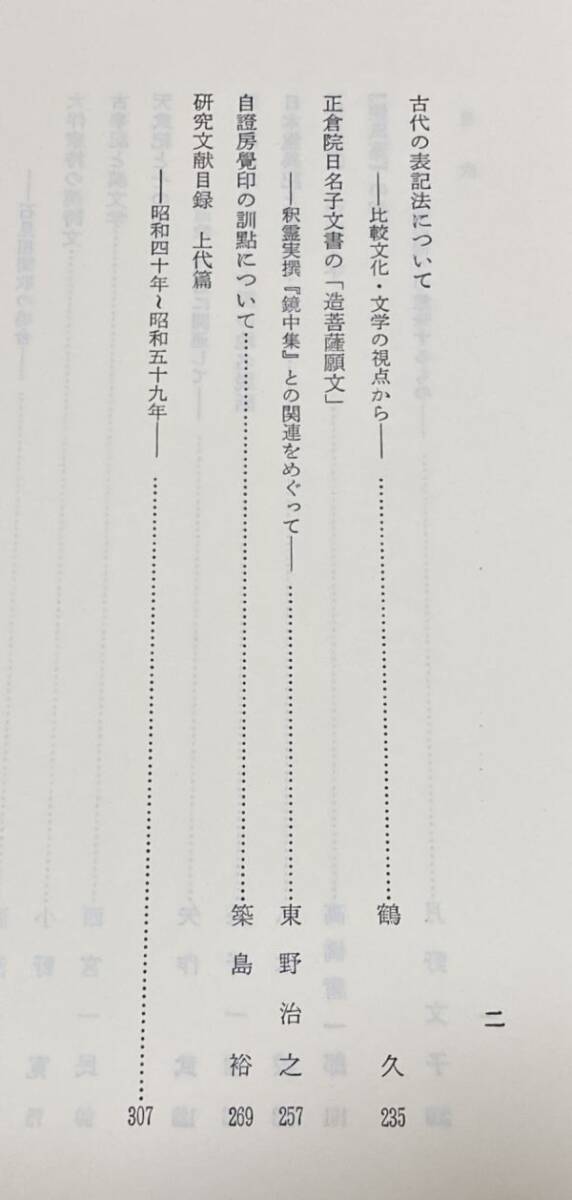 古代の表記法について
――比較文化・文学の視点から――……………………鶴 久 235
正倉院日名子文書の「造菩薩願文」
――釈霊実撰『鏡中集』との関連をめぐって――……………………東野治之 257
自證房覺印の訓點について……………………築島裕 269
研究文献目録 上代篇
――昭和四十年～昭和五十九年――……………………307
二